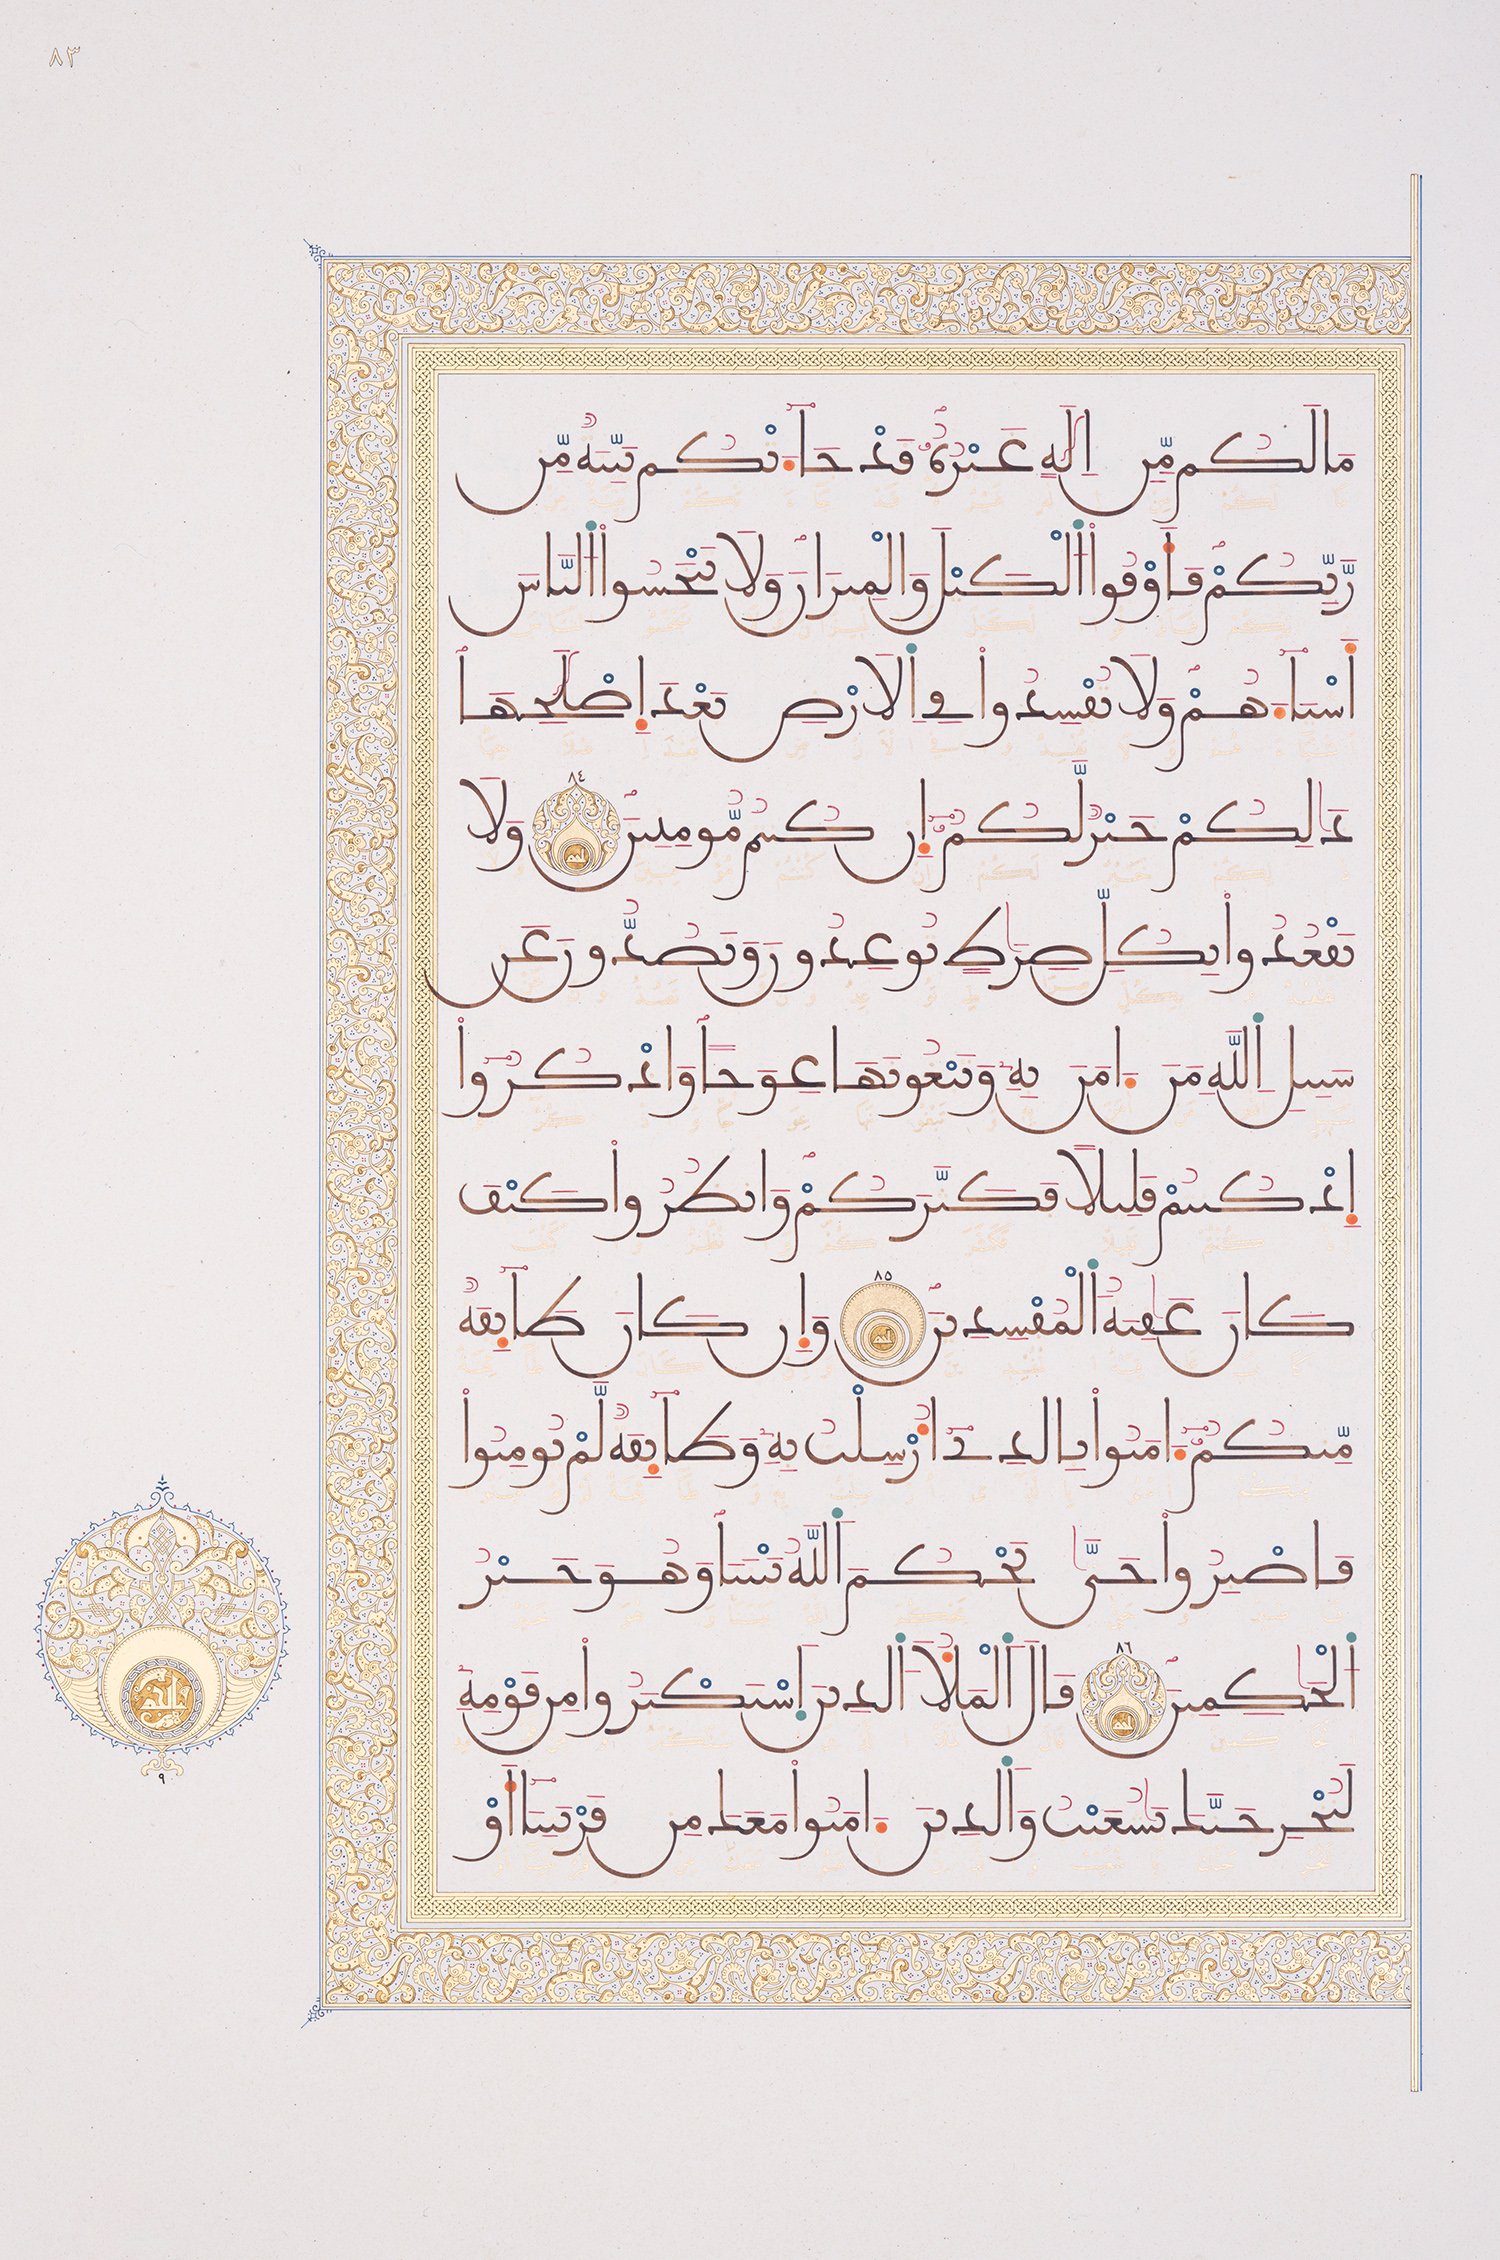 ٨٣
مَا لَكُم مِّنِ اِلَٰهٍ غَيْرُهُۥ قَدْ جَآءَتْكُم بَيِّنَةٌ مِّن
رَّبِّكُمْ فَأَوْفُوا اُ۬لْكَيْلَ وَالْمِيزَانَ وَلَا تَبْخَسُوا اُ۬لنَّاسَ
أَشْيَآءَهُمْ وَلَا تُفْسِدُوا فِي اِ۬لَارْضِ بَعْدَ إِصْلَٰحِهَا
ذَٰلِكُمْ خَيْرٌ لَّكُمُۥٓ إِن كُنتُم مُّومِنِينَ ٨٤ وَلَا
تَقْعُدُوا بِكُلِّ صِرَٰطٍ تُوعِدُونَ وَتَصُدُّونَ عَن
سَبِيلِ اِ۬للَّهِ مَنَ ءَامَنَ بِهِۦ وَتَبْغُونَهَا عِوَجًا وَاذْكُرُوٓا
إِذْ كُنتُمْ قَلِيلًا فَكَثَّرَكُمْ وَانظُرُوا كَيْفَ
كَانَ عَٰقِبَةُ اُ۬لْمُفْسِدِينَ ٨٥ وَإِن كَانَ طَآئِفَةٌ
مِّنكُمُۥٓ ءَامَنُوا بِالذِےٓ أُرْسِلْتُ بِهِۦ وَطَآئِفَةٌ لَّمْ يُومِنُوا
فَاصْبِرُوا حَتَّىٰ يَحْكُمَ اَ۬للَّهُ بَيْنَنَا وَهُوَ خَيْرُ
اُ۬لْحَٰكِمِينَ ٨٦ قَالَ اَ۬لْمَلَأُ اُ۬لذِينَ اَ۪سْتَكْبَرُوا مِن قَوْمِهِۦ
لَنُخْرِجَنَّكَ يَٰشُعَيْبُ وَالذِينَ ءَامَنُوا مَعَكَ مِن قَرْيَتِنَآ أَوْ
٩